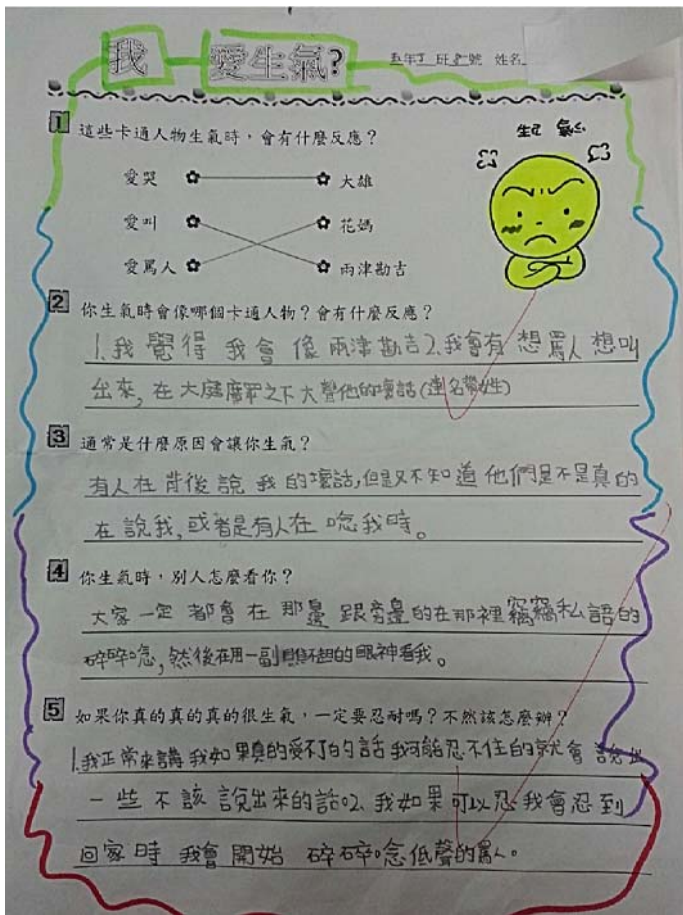 我 愛生氣?
五年丁班 號 姓名
1 這些卡通人物生氣時，會有什麼反應？
生氣
愛哭 大雄
愛叫 花媽
愛罵人 兩津勘吉
2 你生氣時會像哪個卡通人物？會有什麼反應？
1.我覺得我會像兩津勘吉2.我會有想罵人想叫
出來，在大庭廣眾之下大聲他的壞話(連名帶姓)
3 通常是什麼原因會讓你生氣？
有人在背後說我的壞話，但是又不知道他們是不是真的
在說我，或者是有人在唸我時。
4 你生氣時，別人怎麼看你？
大家一定都會在那邊跟旁邊的在那裡竊竊私語的
碎碎唸，然後在用一副瞧不起的眼神看我。
5 如果你真的真的真的很生氣，一定要忍耐嗎？不然該怎麼辦？
1.我正常來講我如果真的受不了的話我可能忍不住的就會說出
一些不該說出來的話。2.我如果可以忍我會忍到
回家時我會開始碎碎唸低聲的罵人。